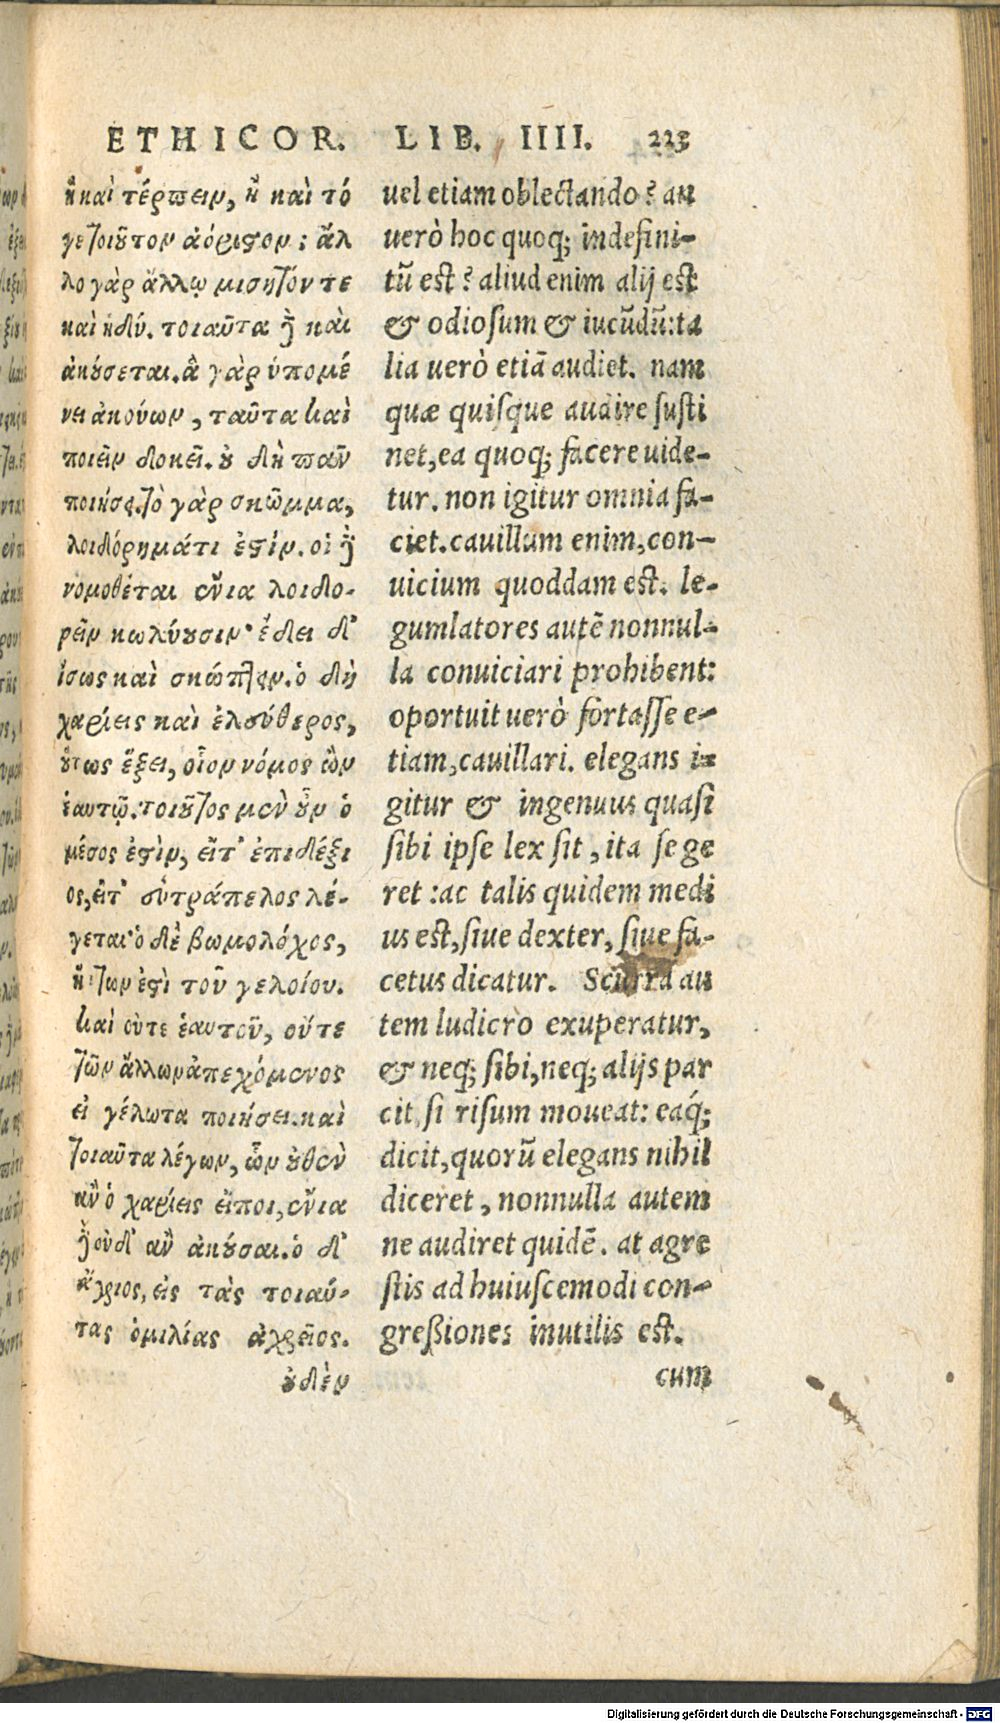 ETHICOR. LIB. IIII. 223
ἢ καὶ τέρπειν, ἢ καὶ τό
γε τοιοῦτον ἀόριστον; ἄλ
λο γὰρ ἄλλῳ μισητόν τε
καὶ ἡδύ. τοιαῦτα δὲ καὶ
ἀκούσεται. ἃ γὰρ ὑπομέ
νει ἀκούων, ταῦτα καὶ
ποιεῖν δοκεῖ. οὐ δὴ πᾶν
ποιήσει. τὸ γὰρ σκῶμμα,
λοιδόρημά τι ἐστίν. οἱ δὲ
νομοθέται ἔνια λοιδο-
ρεῖν κωλύουσιν· ἔδει δ᾽
ἴσως καὶ σκώπτειν. ὁ δὴ
χαρίεις καὶ ἐλεύθερος,
οὕτως ἕξει, οἷον νόμος ὢν
ἑαυτῷ. τοιοῦτος μὲν οὖν ὁ
μέσος ἐστὶν, εἴτ᾽ ἐπιδέξι
ος, εἴτ᾽ εὐτράπελος λέ-
γεται· ὁ δὲ βωμολόχος,
ἥτων ἐστὶ τοῦ γελοίου.
καὶ οὔτε ἑαυτοῦ, οὔτε
τῶν ἄλλων ἀπεχόμενος
εἰ γέλωτα ποιήσει. καὶ
τοιαῦτα λέγων, ὧν οὐθὲν
ἂν ὁ χαρίεις εἴποι, ἔνια
δὲ οὐδ᾽ ἂν ἀκούσαι. ὁ δ᾽
ἄγριος, εἰς τὰς τοιαύ-
τας ὁμιλίας ἀχρεῖος.
οὐδὲν
uel etiam oblectando? an
uerò hoc quoq; indefini-
tũ est? aliud enim alij est
& odiosum & iucũdũ: ta
lia uerò etiã audiet. nam
quæ quisque audire susti
net, ea quoq; facere uide-
tur. non igitur omnia fa-
ciet. cauillum enim, con-
uicium quoddam est. le-
gumlatores autẽ nonnul-
la conuiciari prohibent:
oportuit uerò fortasse e-
tiam, cauillari. elegans i-
gitur & ingenuus quasi
sibi ipse lex sit, ita se ge
ret: ac talis quidem medi
us est, siue dexter, siue fa-
cetus dicatur. Scurra au
tem ludicro exuperatur,
& neq; sibi, neq; alijs par
cit, si risum moueat: eaq́;
dicit, quorũ elegans nihil
diceret, nonnulla autem
ne audiret quidẽ. at agre
stis ad huiuscemodi con-
greßiones inutilis est.
cum
Digitalisierung gefördert durch die Deutsche Forschungsgemeinschaft - DFG